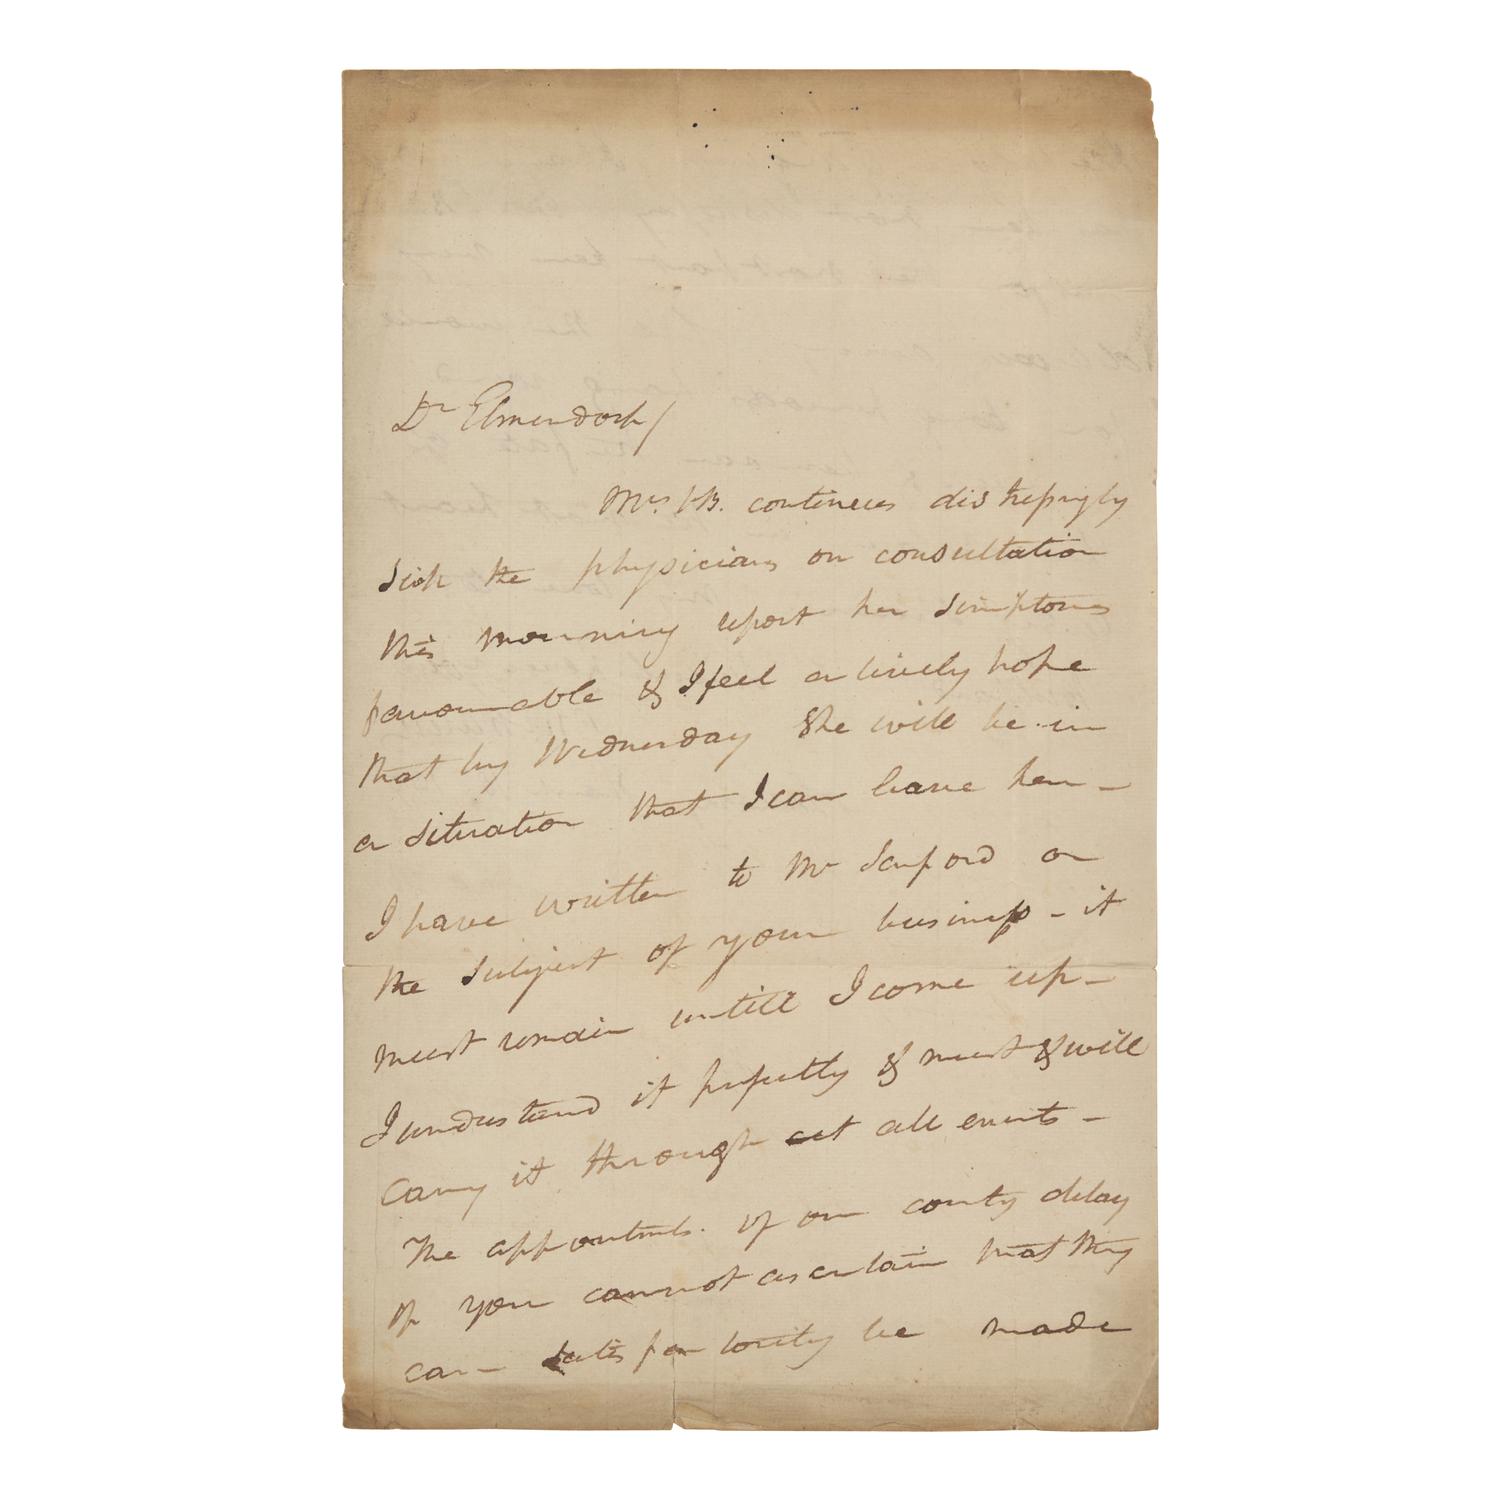 Dr Elmendorf/
Mrs. VB. continues distressingly
sick the physicians on consultation
this mourning report her simptoms
favourable & I feel a lively hope
that by Wednesday She will be in
a situation that I can leave her –
I have written to Mr Sanford on
the subject of your business – it
must remain untill I come up –
I understand it perfectly & must & will
carry it through at all events –
The appointmts. of our county delay
if you cannot ascertain that they
can satisfactorily be made